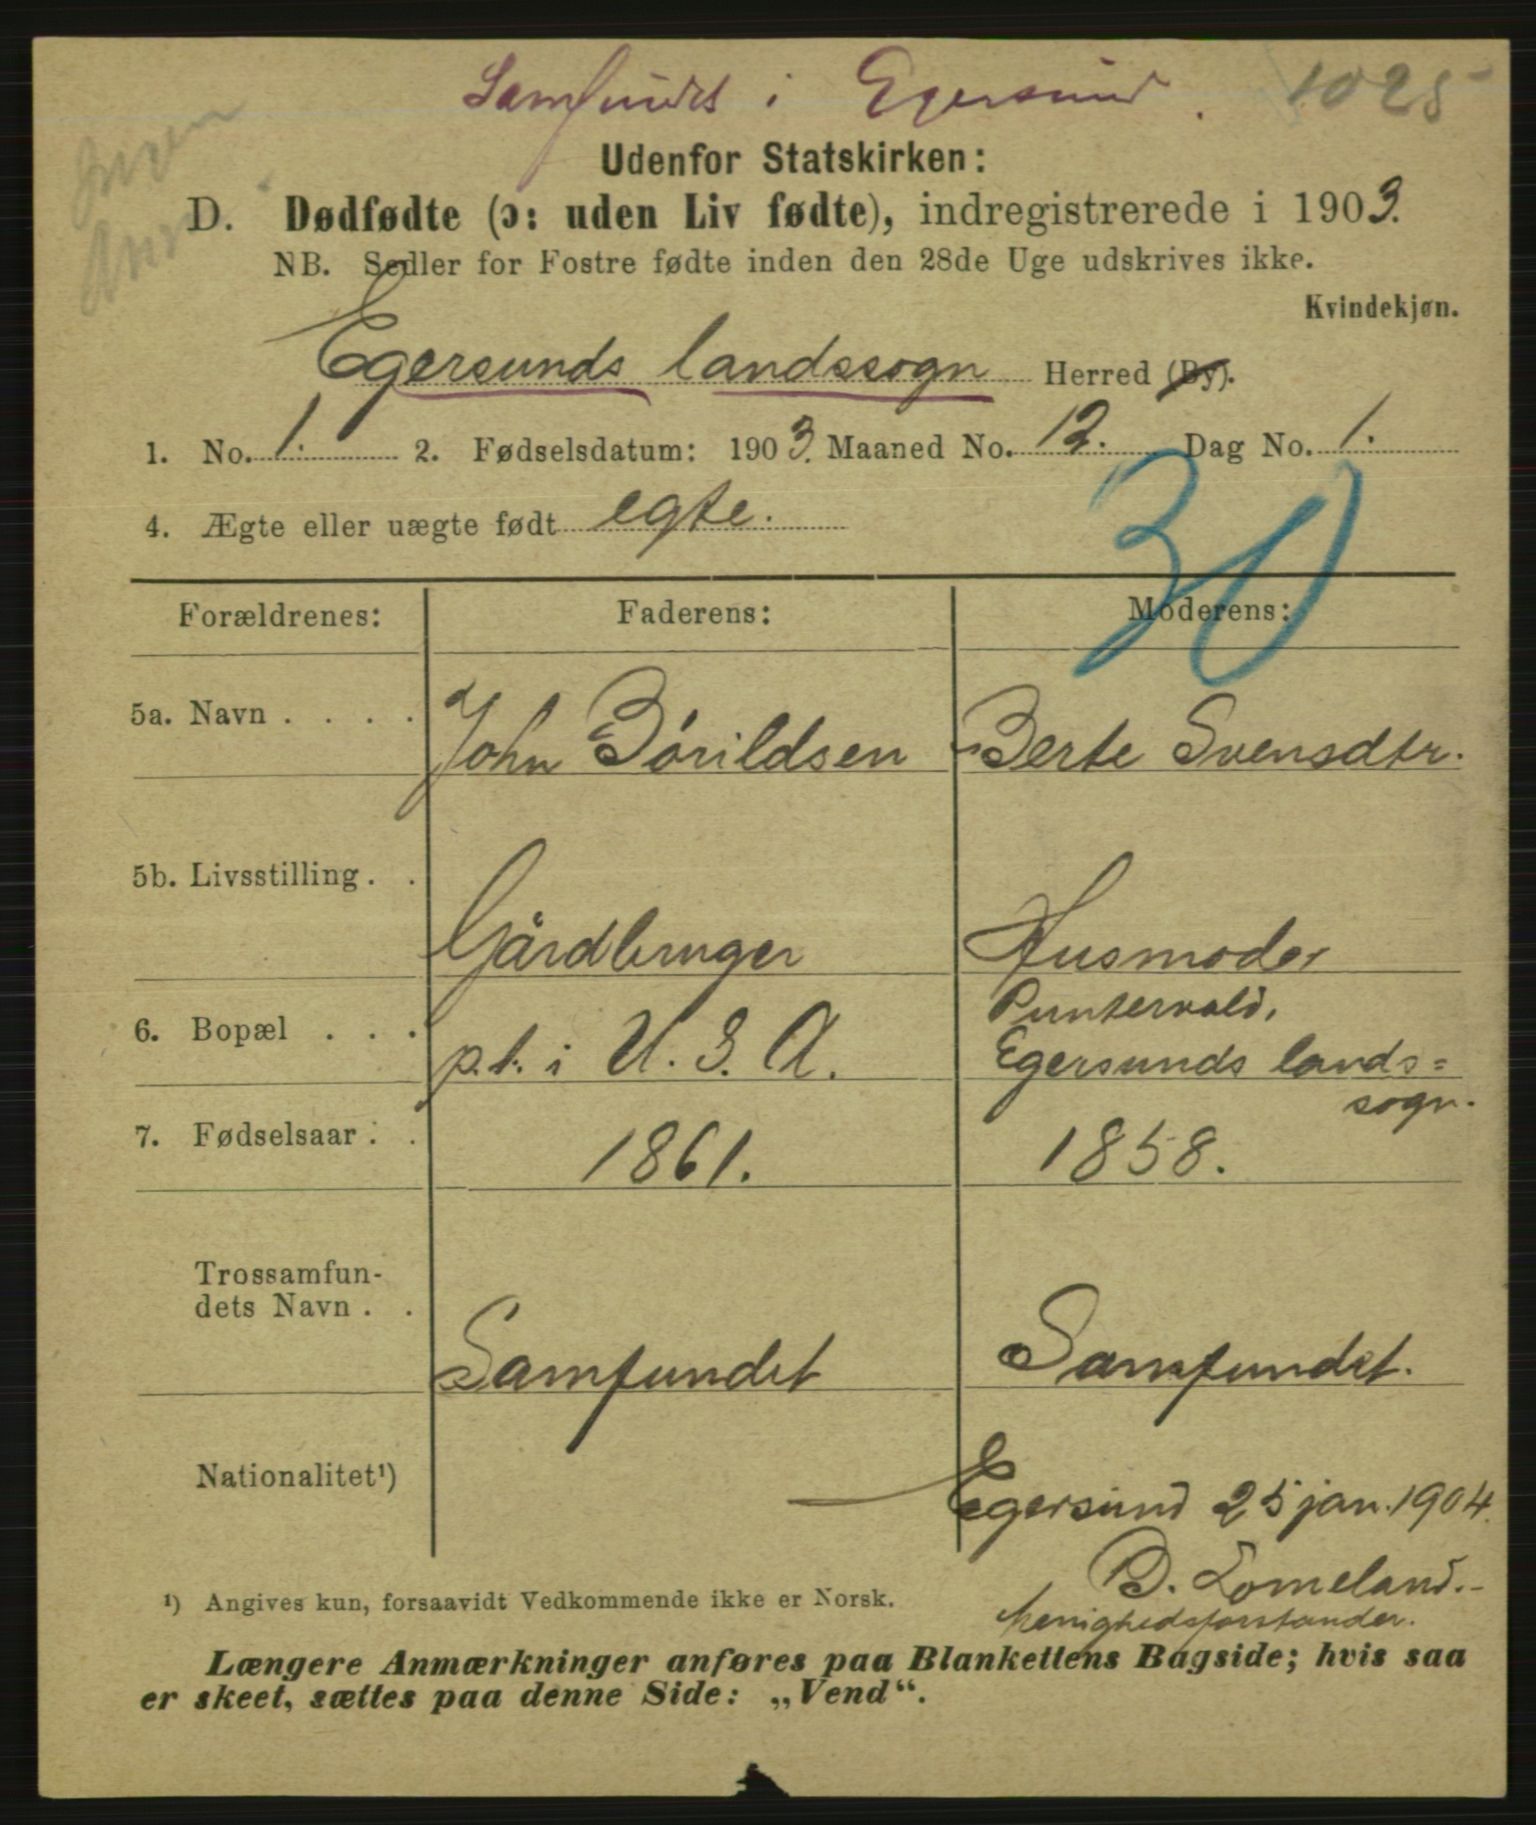 Samfundet i Egersund. 1025
Ingen
Anm.
Udenfor Statskirken:
D. Dødfødte (ɔ: uden Liv fødte), indregistrerede i 1903.
NB. Sedler for Fostre fødte inden den 28de Uge udskrives ikke.
Kvindekjøn.
Egersunds landssogn Herred (By).
1. No. 1. 2. Fødselsdatum: 1903. Maaned No. 12. Dag No. 1.
30
4. Ægte eller uægte født egte.
Forældrenes: Faderens: Moderens:
5a. Navn . . . . John Bórildsen Berte Svensdtr.
5b. Livsstilling . . Gårdbruger Husmoder
6. Bopæl . . . p.t. i U. S. A. Puntervold, Egersunds lands=
sogn.
7. Fødselsaar . . 1861. 1858.
Trossamfun-
dets Navn . . Samfundet Samfundet.
Nationalitet¹)
Egersund 25 jan. 1904.
B. Lomeland.
Menighedsforstander.
¹) Angives kun, forsaavidt Vedkommende ikke er Norsk.
Længere Anmærkninger anføres paa Blankettens Bagside; hvis saa
er skeet, sættes paa denne Side: „Vend“.